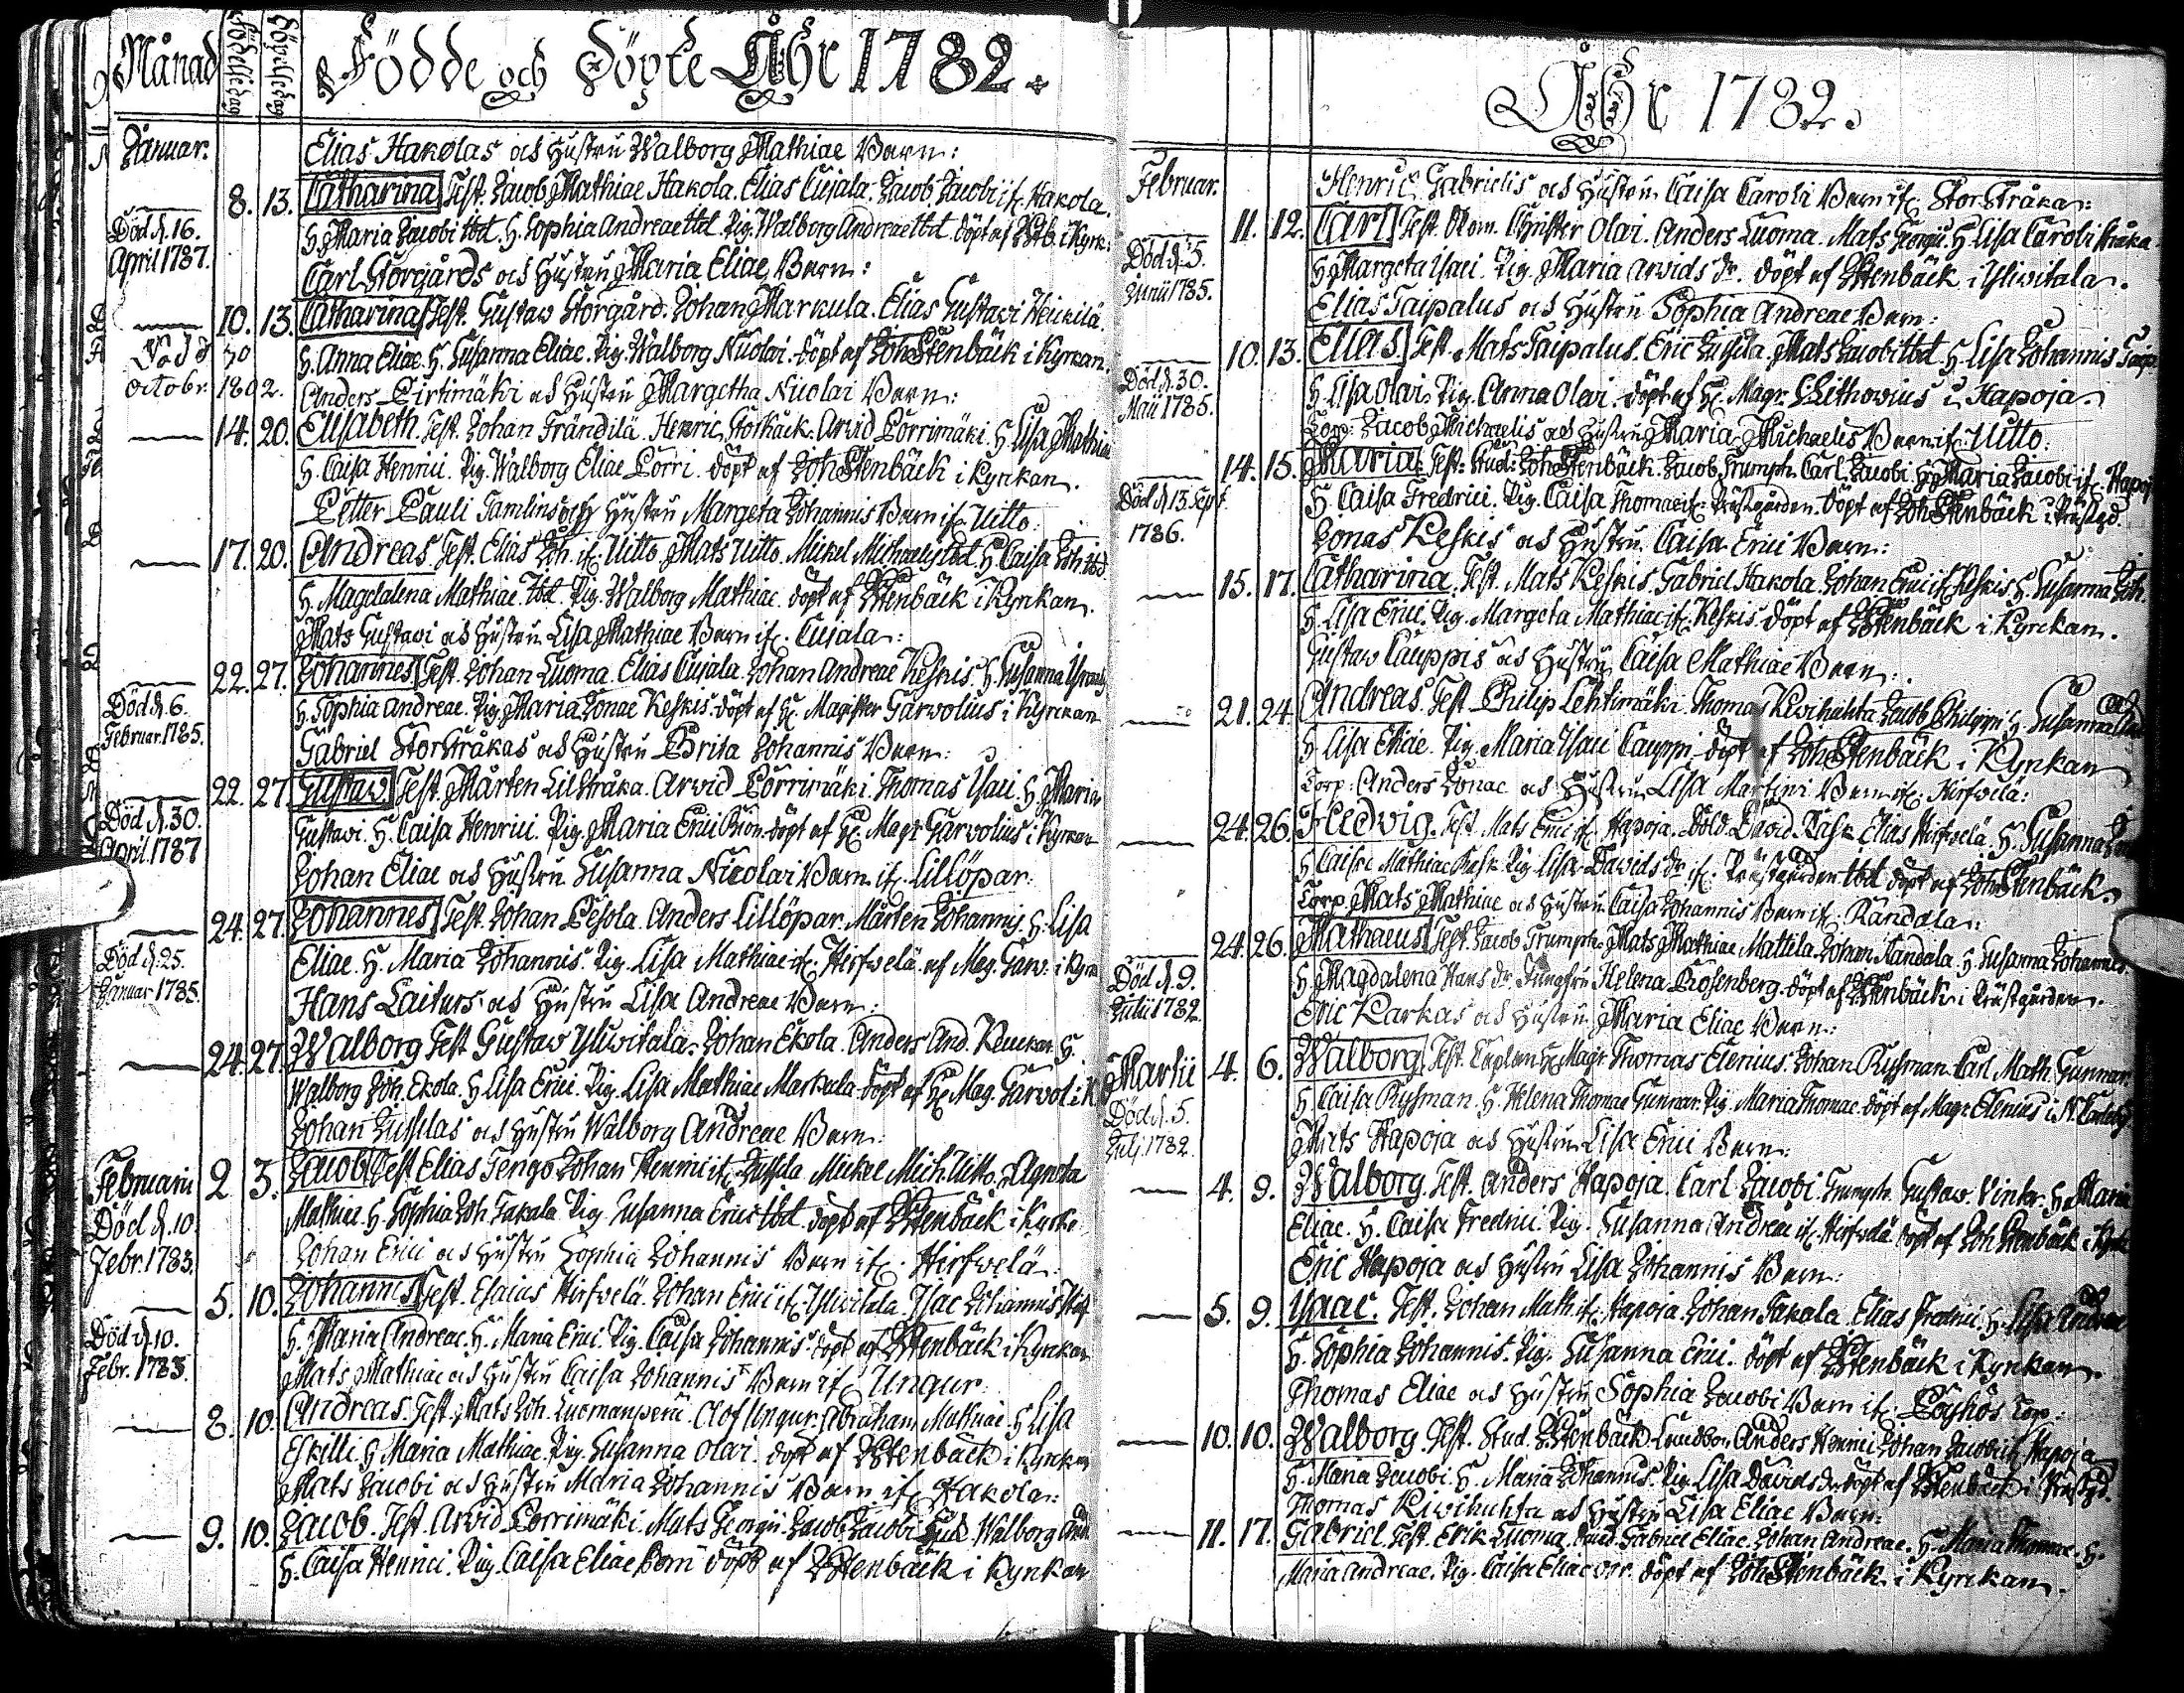 Månad Födelsedag Döpelsedag Födde och Döpte Åhr 1782.
Januar. Elias Hakolas och Hustru Walborg Mathiae Barn:
8. 13. Catharina Test. Jacob Mathiae Hakola. Elias Cujala. Jacob Jacobi if. Hakola.
Död d. 16. April 1787.
H. Maria Jacobi Ibd. H. Sophia Andreae Ibd. Pig. Walborg Andreae Ibd. döpt af i Kyrk:
Carl Storgårds och Hustru Maria Eliae Barn:
10. 13. Catharina Test. Gustaw Storgård. Johan Markula. Elias Gustavi Heickilä.
Död d 30 octobr. 1802.
H. Anna Eliae. H. Susanna Eliae. Pig. Walborg Nicolai. döpt af Joh Stenbäck i Kyrkan.
Anders Pirtimäki och Hustru Margetha Nicolai Barn:
14. 20. Elisabeth. Test. Johan Frändilä. Henric Storkack. Arvid Porrimäki. H. Lisa Mathiae
H. Caisa Henrici. Pig. Walborg Eliae Porri. döpt af Joh Stenbäck i Kyrkan.
Petter Pauli Tamlins och Hustru Margeta Johannis Barn if. Uitto:
17. 20. Andreas. Test. Elias Joh. if. Uitto Mats Uitto. Mickel Michaelis Ibd. H. Caisa Joh. Ibd.
H. Magdalena Mathiae. Ibd. Pig. Walborg Mathiae. döpt af Stenbäck i Kyrkan.
Mats Gustavi och Hustru Lisa Mathiae Barn if. Cujala:
22. 27. Johannes Test. Johan Luoma. Elias Cujala. Johan Andreae Keskis. H. Susanna
Död d. 6. Februar. 1785.
H. Sophia Andreae. Pig. Maria Jonae Keskis. döpt af H. Magister Garvolius i Kyrckan
Gabriel Storstråkas och Hustru Brita Johannis Barn:
22. 27. Gustaw Test. Mårten Lilstråka. Arvid Porrimäki. Thomas Ysaci. H. Maria
Död d. 30. April. 1787
Gustavi. H. Caisa Henrici. Pig. Maria Erici döpt af H. Magr. Garvolius i Kyrckan
Johan Eliae och Hustru Susanna Nicolai Barn if. Lillöpar:
24. 27. Johannes Test. Johan Pesola. Anders Lillöpar. Mårten Johannis. H. Lisa
Död d. 25. Januar 1785.
Eliae. H. Maria Johannis. Pig. Lisa Mathiae if. Hirfwelä. af Mag. Garv. i Kyrk
Hans Laiturs och Hustru Lisa Andreae Barn:
24. 27. Walborg Test Gustaw Yliwitala. Johan Ekola. Anders And. H.
Walborg Joh. Ekola. H Lisa Erici. Pig. Lisa Mathiae Markula döpt af H. Mag. Garvol. i K
Johan Jussilas och Hustru Walborg Andreae Barn:
Februarii 2 3. Jacob Test Elias Tengo Johan Henrici if. Jussila Mickel Mich. Uitto. H Agneta
Död d. 10 Febr. 1783.
Mathiae. H Sophia Joh. Takala Pig. Susanna Erici Ibd. döpt af Stenbäck i Kyrke
Johan Erici och Hustru Sophia Johannis Barn if. Hirfwelä:
5. 10. Johannes Test. Esaias Hirfvelä. Johan Erici if. Yliwitala. Isac Johannis
Död d. 10. Febr. 1783.
H. Maria Andreae. H. Maria Erici. Pig. Caisa Johannis. döpt af Stenbäck i Kyrckan
Mats Mathiae och Hustru Caisa Johannis Barn if. Ungur.
8. 10. Andreas. Test. Mats Joh. Luomanperä. Olof Ungur. Abraham Mathiae. H Lisa
Eskilli. H Maria Mathiae. Pig. Susanna Olai. döpt af Stenbäck i Kyrckan
Mats Jacobi och Hustru Maria Johannis Barn if. Hakola:
9. 10. Jacob. Test. Arvid Porrimäki. Mats Georgii. Jacob Jacobi Walborg
H. Caisa Henrici. Pig. Caisa Eliae Porri döpt af Stenbäck i Kyrkan
Åhr 1782.
Februar. Henric Gabrielis och Hustru Caisa Caroli Barn if. Stor Stråka:
11. 12. Carl Test. Christer Olai. Anders Luoma. Mats Georgii. H Lisa Caroli Stråka
Död d. 5. Junii 1785.
H. Margeta Ysaci. Pig. Maria Arvids dr. döpt af Stenbäck i Yliwitala.
Elias Taipalus och Hustru Sophia Andreae Barn:
10. 13. Elias Test. Mats Taipalus. Eric Jussila. Mats Jacobi Ibd. H Lisa Johannis Taip.
Död d. 30. Maii 1785.
H Lisa Olai. Pig. Anna Olai. döpt af H. Magr. Lithovius i Hapoja.
Torp: Jacob Michaelis och Hustru Maria Michaelis Barn if. Uitto:
14. 15. Maria Test: Stud: Joh Stenbäck. Jacob Trumph. Carl Jacobi H. Maria Jacobi if. Hapoj
Död d. 13. Sept. 1786.
H. Caisa Fredrici. Pig. Caisa Thomae if. Prästgården. döpt af Joh Stenbäck i Prästgd.
Jonas Keskis och Hustru Caisa Erici Barn:
15. 17. Catharina. Test. Mats Keskis. Gabriel Hakola. Johan Erici if. Keskis H. Susanna Joh.
H. Lisa Erici. Pig. Margeta Mathiae if. Keskis. döpt af Stenbäck i Kyrckan.
Gustaw Cauppis och Hustru Caisa Mathiae Barn:
21. 24. Andreas. Test. Philip Lehtimäki. Thomas Kivihuhta Jacob Philippi H Susanna
H Lisa Eliae. Pig. Maria Ysaci Cauppi. döpt af Joh Stenbäck i Kyrkan
Torp: Anders Jonae och Hustru Lisa Martini Barn if. Hirfvelä:
24. 26. Hedvig. Test Mats Erici if. Hapoja. David Rask Elias Hirfvelä. H. Susanna
H Caisa Mathiae Rask Pig. Lisa Davids dr. if. Prästgården Ibd döpt af Joh Stenbäck.
Torp. Mats Mathiae och Hustru Caisa Johannis Barn if. Kandala:
24. 26. Mathaeus Test. Jacob Trumph. Mats Mathiae Mattila. Johan Kandala. H Susanna Johannis.
Död d. 9. Julii 1782.
H Magdalena Hans dr. Jungfru Helena Rosenberg. döpt af Stenbäck i Prästgården.
Eric Karkas och Hustru Maria Eliae Barn:
Martii 4. 6. Walborg Test. Caplan H. Magr. Thomas Elenius. Johan Rysman. Carl Math. Gunnar.
Död d. 5. Julj 1782.
H. Caisa Rysman. H. Helena Thomae Gunnar. Pig. Maria Thomae. döpt af Magr. Elenius i
Mats Hapoja och Hustru Lisa Erici Barn:
4. 9. Walborg. Test. Anders Hapoja. Carl Jacobi. Trumph. Gustaw. H. Maria
Eliae. H. Caisa Fredrici. Pig. Susanna Andreae if. Hirfvelä döpt af Joh Stenbäck i Kyrk
Eric Hapoja och Hustru Lisa Johannis Barn:
5. 9. Ysaac. Test. Johan Math. if. Hapoja. Johan Takala. Elias Fredrici. H. Lisa Andreae
H. Sophia Johannis. Pig. Susanna Erici. döpt af Stenbäck i Kyrckan.
Thomas Eliae och Hustru Sophia Jacobi Barn if. Pöyhös Torp:
10. 10. Walborg. Test. Stud. Stenbäck. Anders Henrici Johan Jacobi if. Hapoja
H. Maria Jacobi. H. Maria Johannis. Pig. Lisa Davids dr. döpt af Stenbäck i Prästgd.
Thomas Kivihuhta och Hustru Lisa Eliae Barn:
11. 17. Gabriel. Test. Erik Luoma. Gabriel Eliae. Johan Andreae. H. Maria Thomae. H.
Maria Andreae. Pig. Caisa Eliae döpt af Joh Stenbäck i Kyrckan.